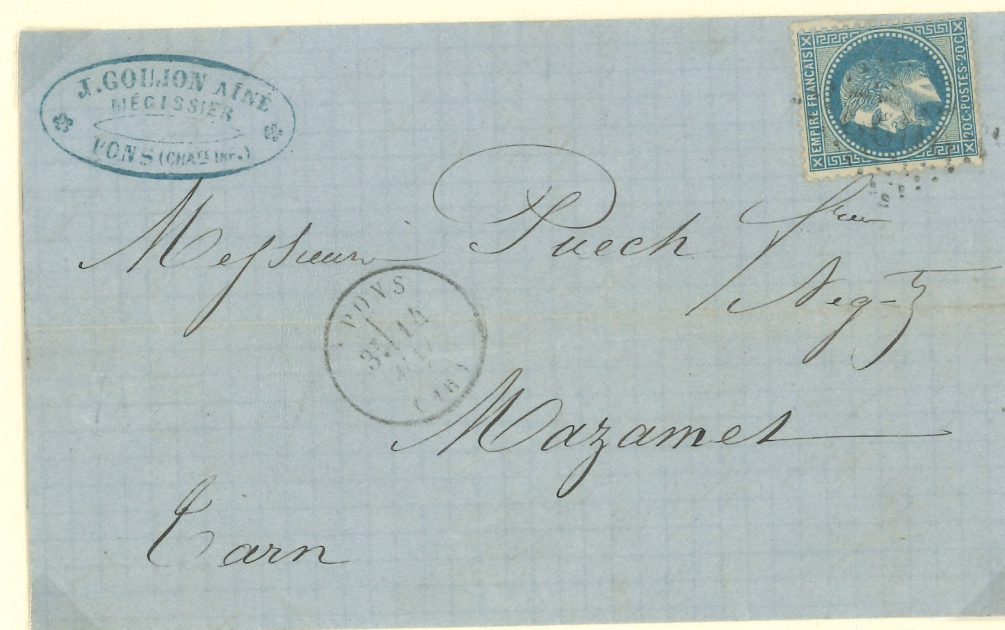 J. GOUJON AÎNÉ
MÉGISSIER
PONS (CHATE INF.)
EMPIRE FRANÇAIS
20 C-POSTES-20 C
Messieurs Puech frères
Neg-ts
PONS
3E 14
(16)
Mazamet
Tarn